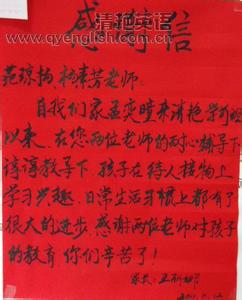 清艳英语
www.qyenglish.com.cn
感谢信
范琼扬、杨素芳老师:
自我们家孟突瞳来清艳学习班
以来,在您两位老师的耐心辅导下
谆谆教导下,孩子在待人接物上
学习兴趣,日常生活习惯上都有了
很大的进步,感谢两位老师对孩子
的教育,你们辛苦了!
家长: